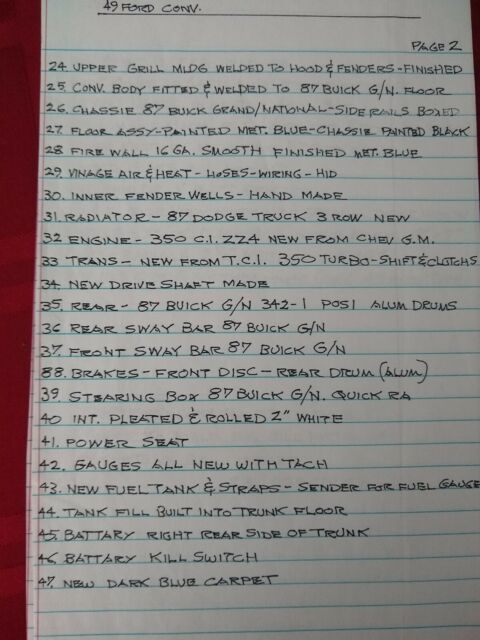 49 FORD CONV.
PAGE 2
24. UPPER GRILL MLDG WELDED TO HOOD & FENDERS - FINISHED
25. CONV. BODY FITTED & WELDED TO 87 BUICK G/N. FLOOR
26. CHASSIE 87 BUICK GRAND/NATIONAL - SIDE RAILS BOXED
27. FLOOR ASSY - PAINTED MET. BLUE - CHASSIE PAINTED BLACK
28. FIRE WALL 16 GA. SMOOTH FINISHED MET. BLUE
29. VINAGE AIR & HEAT - HOSES - WIRING - HID
30. INNER FENDER WELLS - HAND MADE
31. RADIATOR - 87 DODGE TRUCK 3 ROW NEW
32 ENGINE - 350 C.I. ZZ4 NEW FROM CHEV G.M.
33 TRANS - NEW FROM T.C.I. 350 TURBO - SHIFT & CLUTCHS
34. NEW DRIVE SHAFT MADE
35. REAR - 87 BUICK G/N 342-1 POSI ALUM DRUMS
36 REAR SWAY BAR 87 BUICK G/N
37. FRONT SWAY BAR 87 BUICK G/N
88. BRAKES - FRONT DISC - REAR DRUM (ALUM)
39. STEARING BOX 87 BUICK G/N. QUICK RA
40 INT. PLEATED & ROLLED 2" WHITE
41. POWER SEAT
42. GAUGES ALL NEW WITH TACH
43. NEW FUEL TANK & STRAPS - SENDER FOR FUEL GAUGE
44. TANK FILL BUILT INTO TRUNK FLOOR
45. BATTARY RIGHT REAR SIDE OF TRUNK
46. BATTARY KILL SWITCH
47. NEW DARK BLUE CARPET